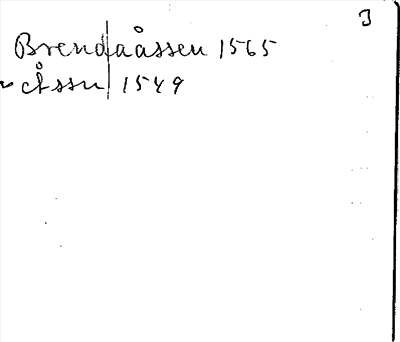 J
Brend|aåssen 1565
~ Åssn| 1549